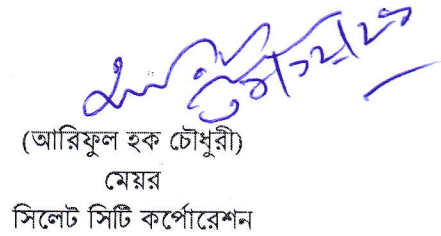 (আরিফুল হক চৌধুরী)
মেয়র
সিলেট সিটি কর্পোরেশন